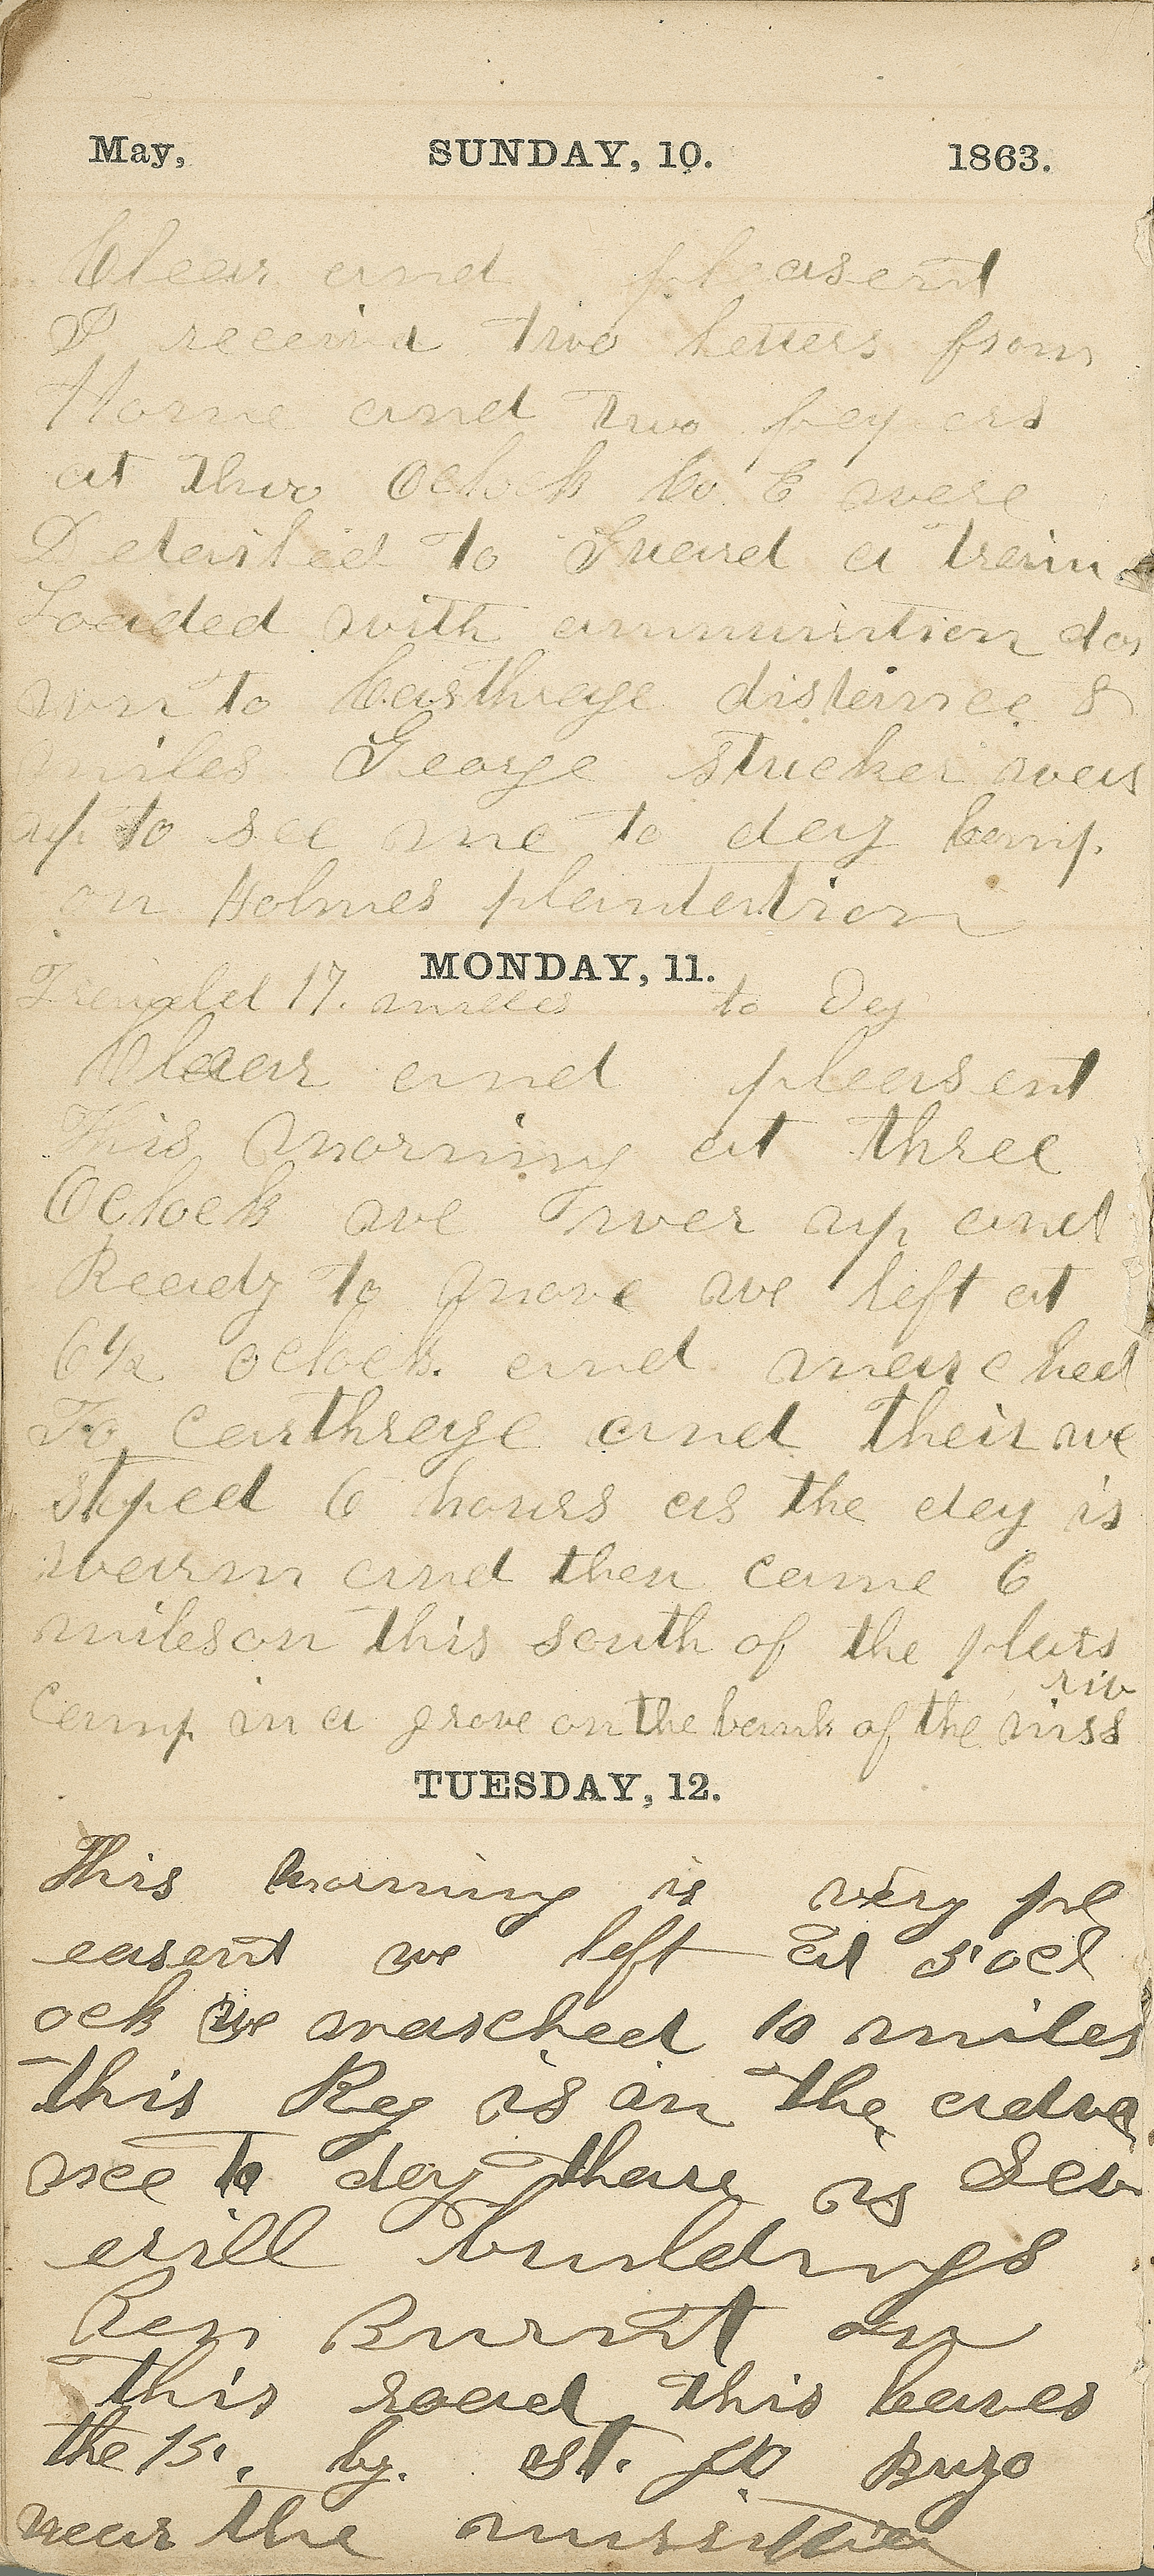 May, SUNDAY, 10. 1863.
Clear and pleasent
I receivd two letters from
Home and two pepers
at two Oclock Co E were
Detailed to Guard a train
Loaded with ammunition do
wn to Carthrage distance 8
miles George Stucker was
up to see me to day Camp.
on Holmes plantation
MONDAY, 11.
Traveled 17. miles to Day
Clear and pleasent
This morning at three
Oclock we wer up and
Ready to move we left at
6½ oclock. and marched
To Carthrage and their we
stped 6 hours as the day is
warm and then came 6
miles on this south of the
Camp in a grove on the bank of the miss
riv
TUESDAY, 12.
This morning is very ple
easent we left at 5'ocl
ock we marched 10 miles
this Reg is in the adva
nce to day thare is Sev
erill buildings
Ben Burnt on
this road this leaves
the 15'. by. St. Jo
near the